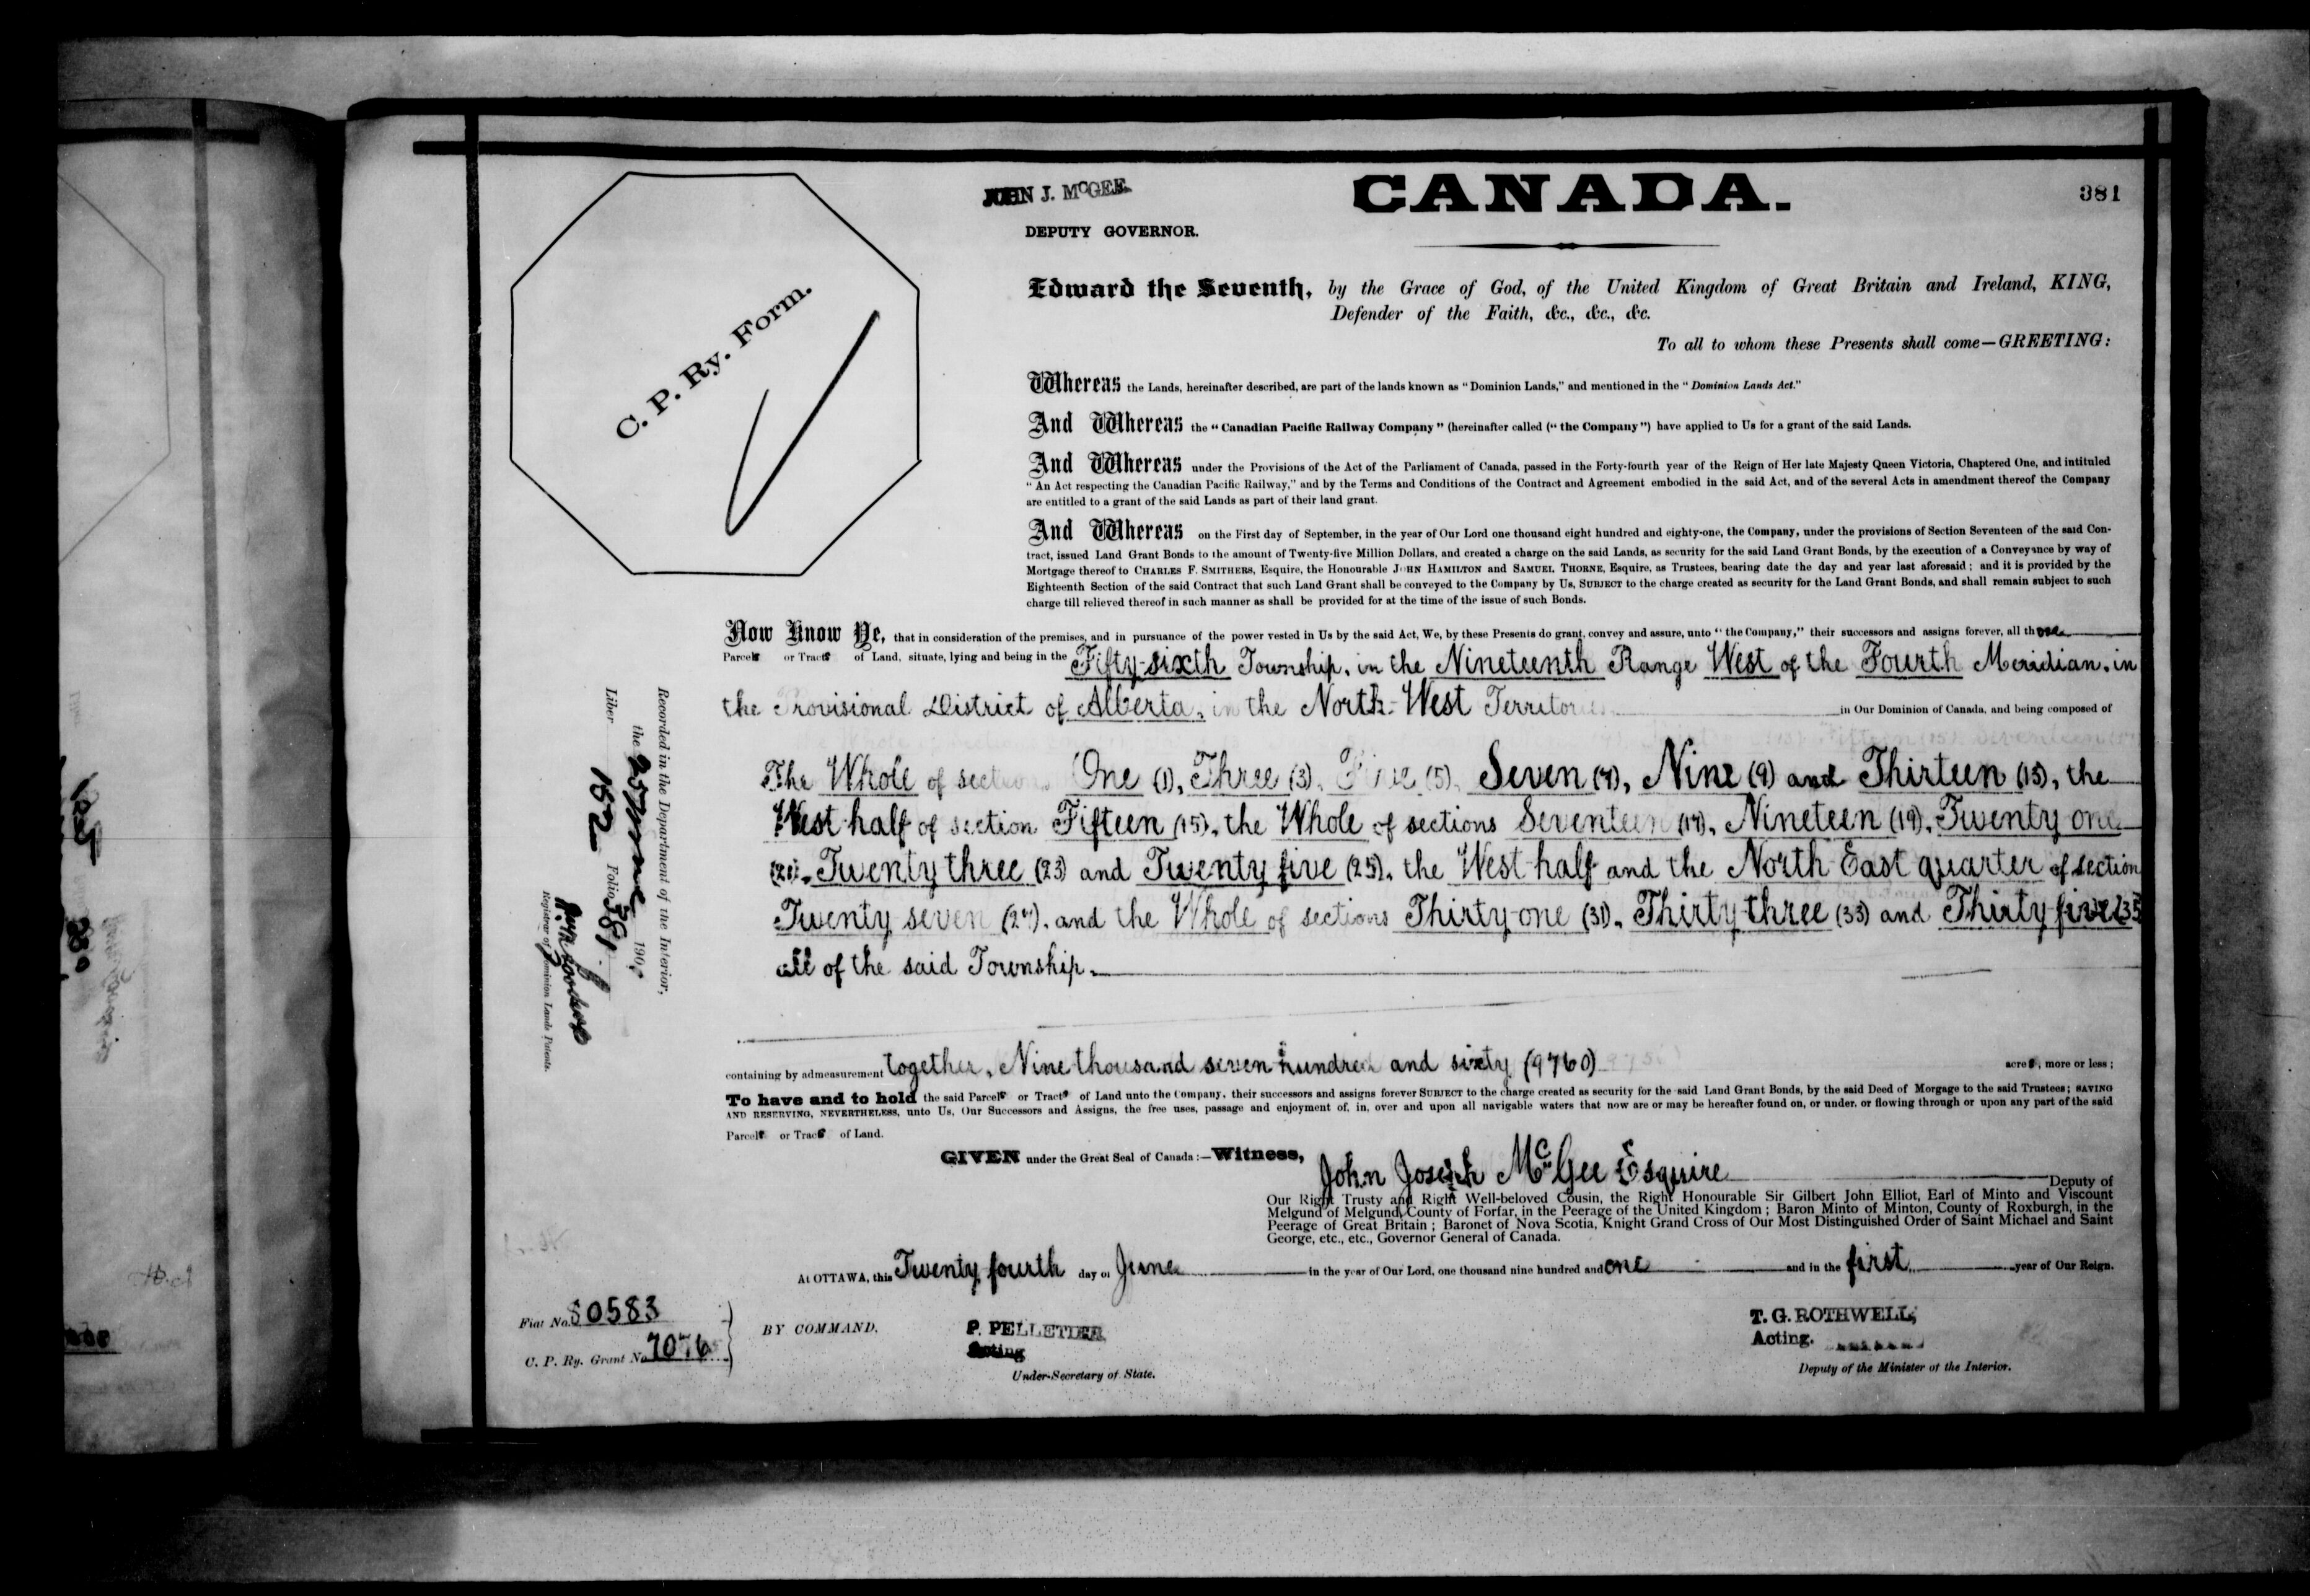 JOHN J. McGEE
DEPUTY GOVERNOR.
CANADA.
381
C. P. Ry. Form.
Edward the Seventh, by the Grace of God, of the United Kingdom of Great Britain and Ireland, KING,
Defender of the Faith, &c., &c., &c.
To all to whom these Presents shall come—GREETING:
Whereas the Lands, hereinafter described, are part of the lands known as "Dominion Lands," and mentioned in the "Dominion Lands Act."
And Whereas the "Canadian Pacific Railway Company" (hereinafter called ("the Company") have applied to Us for a grant of the said Lands.
And Whereas under the Provisions of the Act of the Parliament of Canada, passed in the Forty-fourth year of the Reign of Her late Majesty Queen Victoria, Chaptered One, and intituled
"An Act respecting the Canadian Pacific Railway," and by the Terms and Conditions of the Contract and Agreement embodied in the said Act, and of the several Acts in amendment thereof the Company
are entitled to a grant of the said Lands as part of their land grant.
And Whereas on the First day of September, in the year of Our Lord one thousand eight hundred and eighty-one, the Company, under the provisions of Section Seventeen of the said Con-
tract, issued Land Grant Bonds to the amount of Twenty-five Million Dollars, and created a charge on the said Lands, as security for the said Land Grant Bonds, by the execution of a Conveyance by way of
Mortgage thereof to CHARLES F. SMITHERS, Esquire, the Honourable JOHN HAMILTON and SAMUEL THORNE, Esquire, as Trustees, bearing date the day and year last aforesaid; and it is provided by the
Eighteenth Section of the said Contract that such Land Grant shall be conveyed to the Company by Us, SUBJECT to the charge created as security for the Land Grant Bonds, and shall remain subject to such
charge till relieved thereof in such manner as shall be provided for at the time of the issue of such Bonds.
Now Know Ye, that in consideration of the premises, and in pursuance of the power vested in Us by the said Act, We, by these Presents do grant, convey and assure, unto "the Company," their successors and assigns forever, all those
Parcels or Tracts of Land, situate, lying and being in the Fifty-sixth Township, in the Nineteenth Range West of the Fourth Meridian, in
the Provisional District of Alberta, in the North-West Territories in Our Dominion of Canada, and being composed of
The Whole of sections One (1), Three (3), Five (5), Seven (7), Nine (9) and Thirteen (13), the
West half of section Fifteen (15), the Whole of sections Seventeen (17), Nineteen (19), Twenty one
(21), Twenty three (23) and Twenty five (25), the West half and the North East quarter of section
Twenty seven (27), and the Whole of sections Thirty-one (31), Thirty-three (33) and Thirty-five (35
all of the said Township.
containing by admeasurement together, Nine thousand seven hundred and sixty (9760) acres, more or less;
To have and to hold the said Parcels or Tracts of Land unto the Company, their successors and assigns forever SUBJECT to the charge created as security for the said Land Grant Bonds, by the said Deed of Morgage to the said Trustees; SAVING
AND RESERVING, NEVERTHELESS, unto Us, Our Successors and Assigns, the free uses, passage and enjoyment of, in, over and upon all navigable waters that now are or may be hereafter found on, or under, or flowing through or upon any part of the said
Parcels or Tracts of Land.
GIVEN under the Great Seal of Canada:—Witness, John Joseph McGee Esquire Deputy of
Our Right Trusty and Right Well-beloved Cousin, the Right Honourable Sir Gilbert John Elliot, Earl of Minto and Viscount
Melgund of Melgund, County of Forfar, in the Peerage of the United Kingdom; Baron Minto of Minton, County of Roxburgh, in the
Peerage of Great Britain; Baronet of Nova Scotia, Knight Grand Cross of Our Most Distinguished Order of Saint Michael and Saint
George, etc., etc., Governor General of Canada.
At OTTAWA, this Twenty fourth day of June in the year of Our Lord, one thousand nine hundred and one and in the first year of Our Reign.
Fiat No. 80583
C. P. Ry. Grant No. 7076
BY COMMAND,
P. PELLETIER
Acting
Under-Secretary of State.
T. G. ROTHWELL,
Acting.
Deputy of the Minister of the Interior.
Recorded in the Department of the Interior,
the 25 June 1901
Liber 152 Folio 381
Registrar of Dominion Lands Patents.